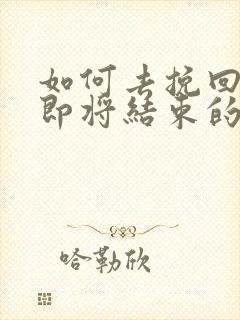 如何去挽回
即将结束的
哈勒欣